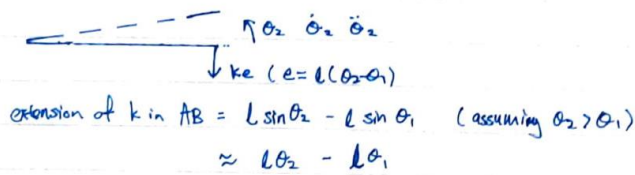 θ₂ θ̇₂ θ̈₂
ke (e = l(θ₂-θ₁)
extension of k in AB = l sinθ₂ - l sin θ₁ (assuming θ₂ > θ₁)
≈ lθ₂ - lθ₁